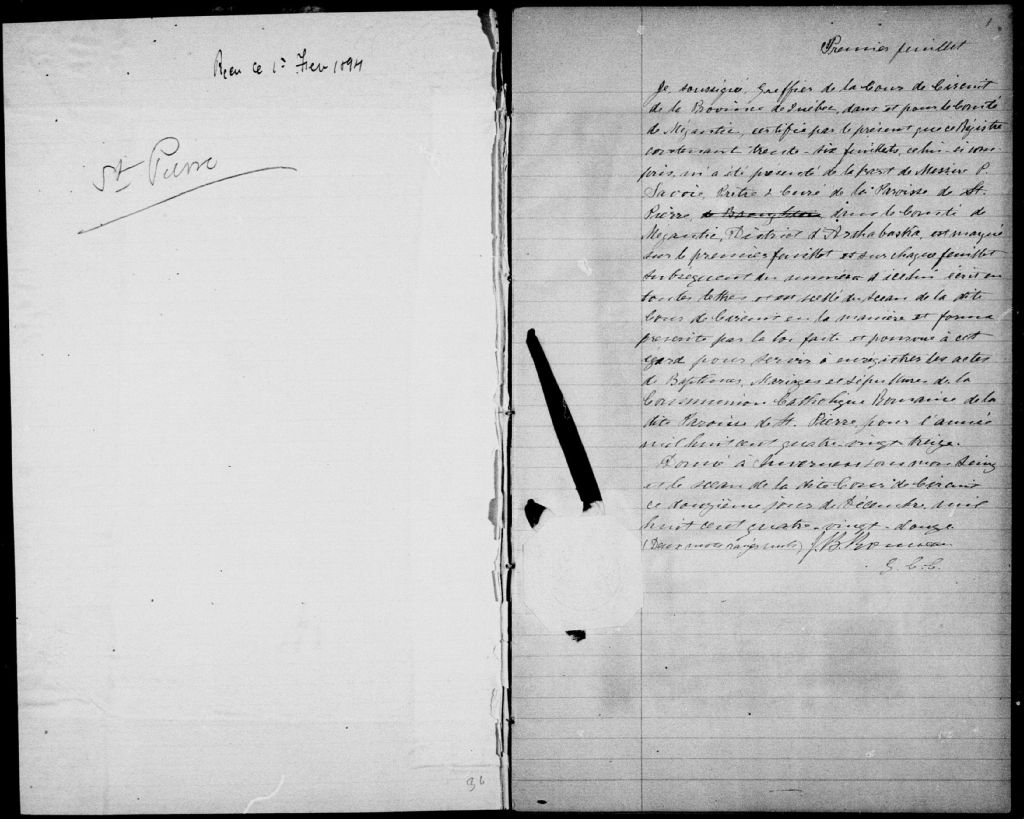 Reçu ce 1er Fev 1894
St Pierre
36
1
Premier feuillet
Je, soussigné, Greffier de la Cour de Circuit
de la Province de Québec, dans et pour le Comté
de Mégantic, certifie par le présent que ce Régistre
contenant trente-six feuillets, celui-ci com-
pris, m'a été présenté de la part de Messire P.
Savoie, Prêtre & Curé de la Paroisse de St.
Pierre, de Broughton dans le Comté de
Mégantic, District d'Arthabaska, est marqué
sur le premier feuillet et sur chaque feuillet
subséquent du numéro d'icelui écrit en
toutes lettres et est scellé du sceau de la dite
Cour de Circuit en la manière et forme
prescrite par la loi faite et pourvue à cet
égard pour servir à enregistrer les actes
de Baptêmes, Mariages et Sépultures de la
Communion Catholique Romaine de la
dite Paroisse de St. Pierre, pour l'année
mil huit cent quatre-vingt treize.
Donné à Inverness sous mon Seing
et le sceau de la dite Cour de Circuit
ce douzième jour de Décembre mil
huit cent quatre-vingt-douze
(Deux mots rayés nuls)
G. C. C.